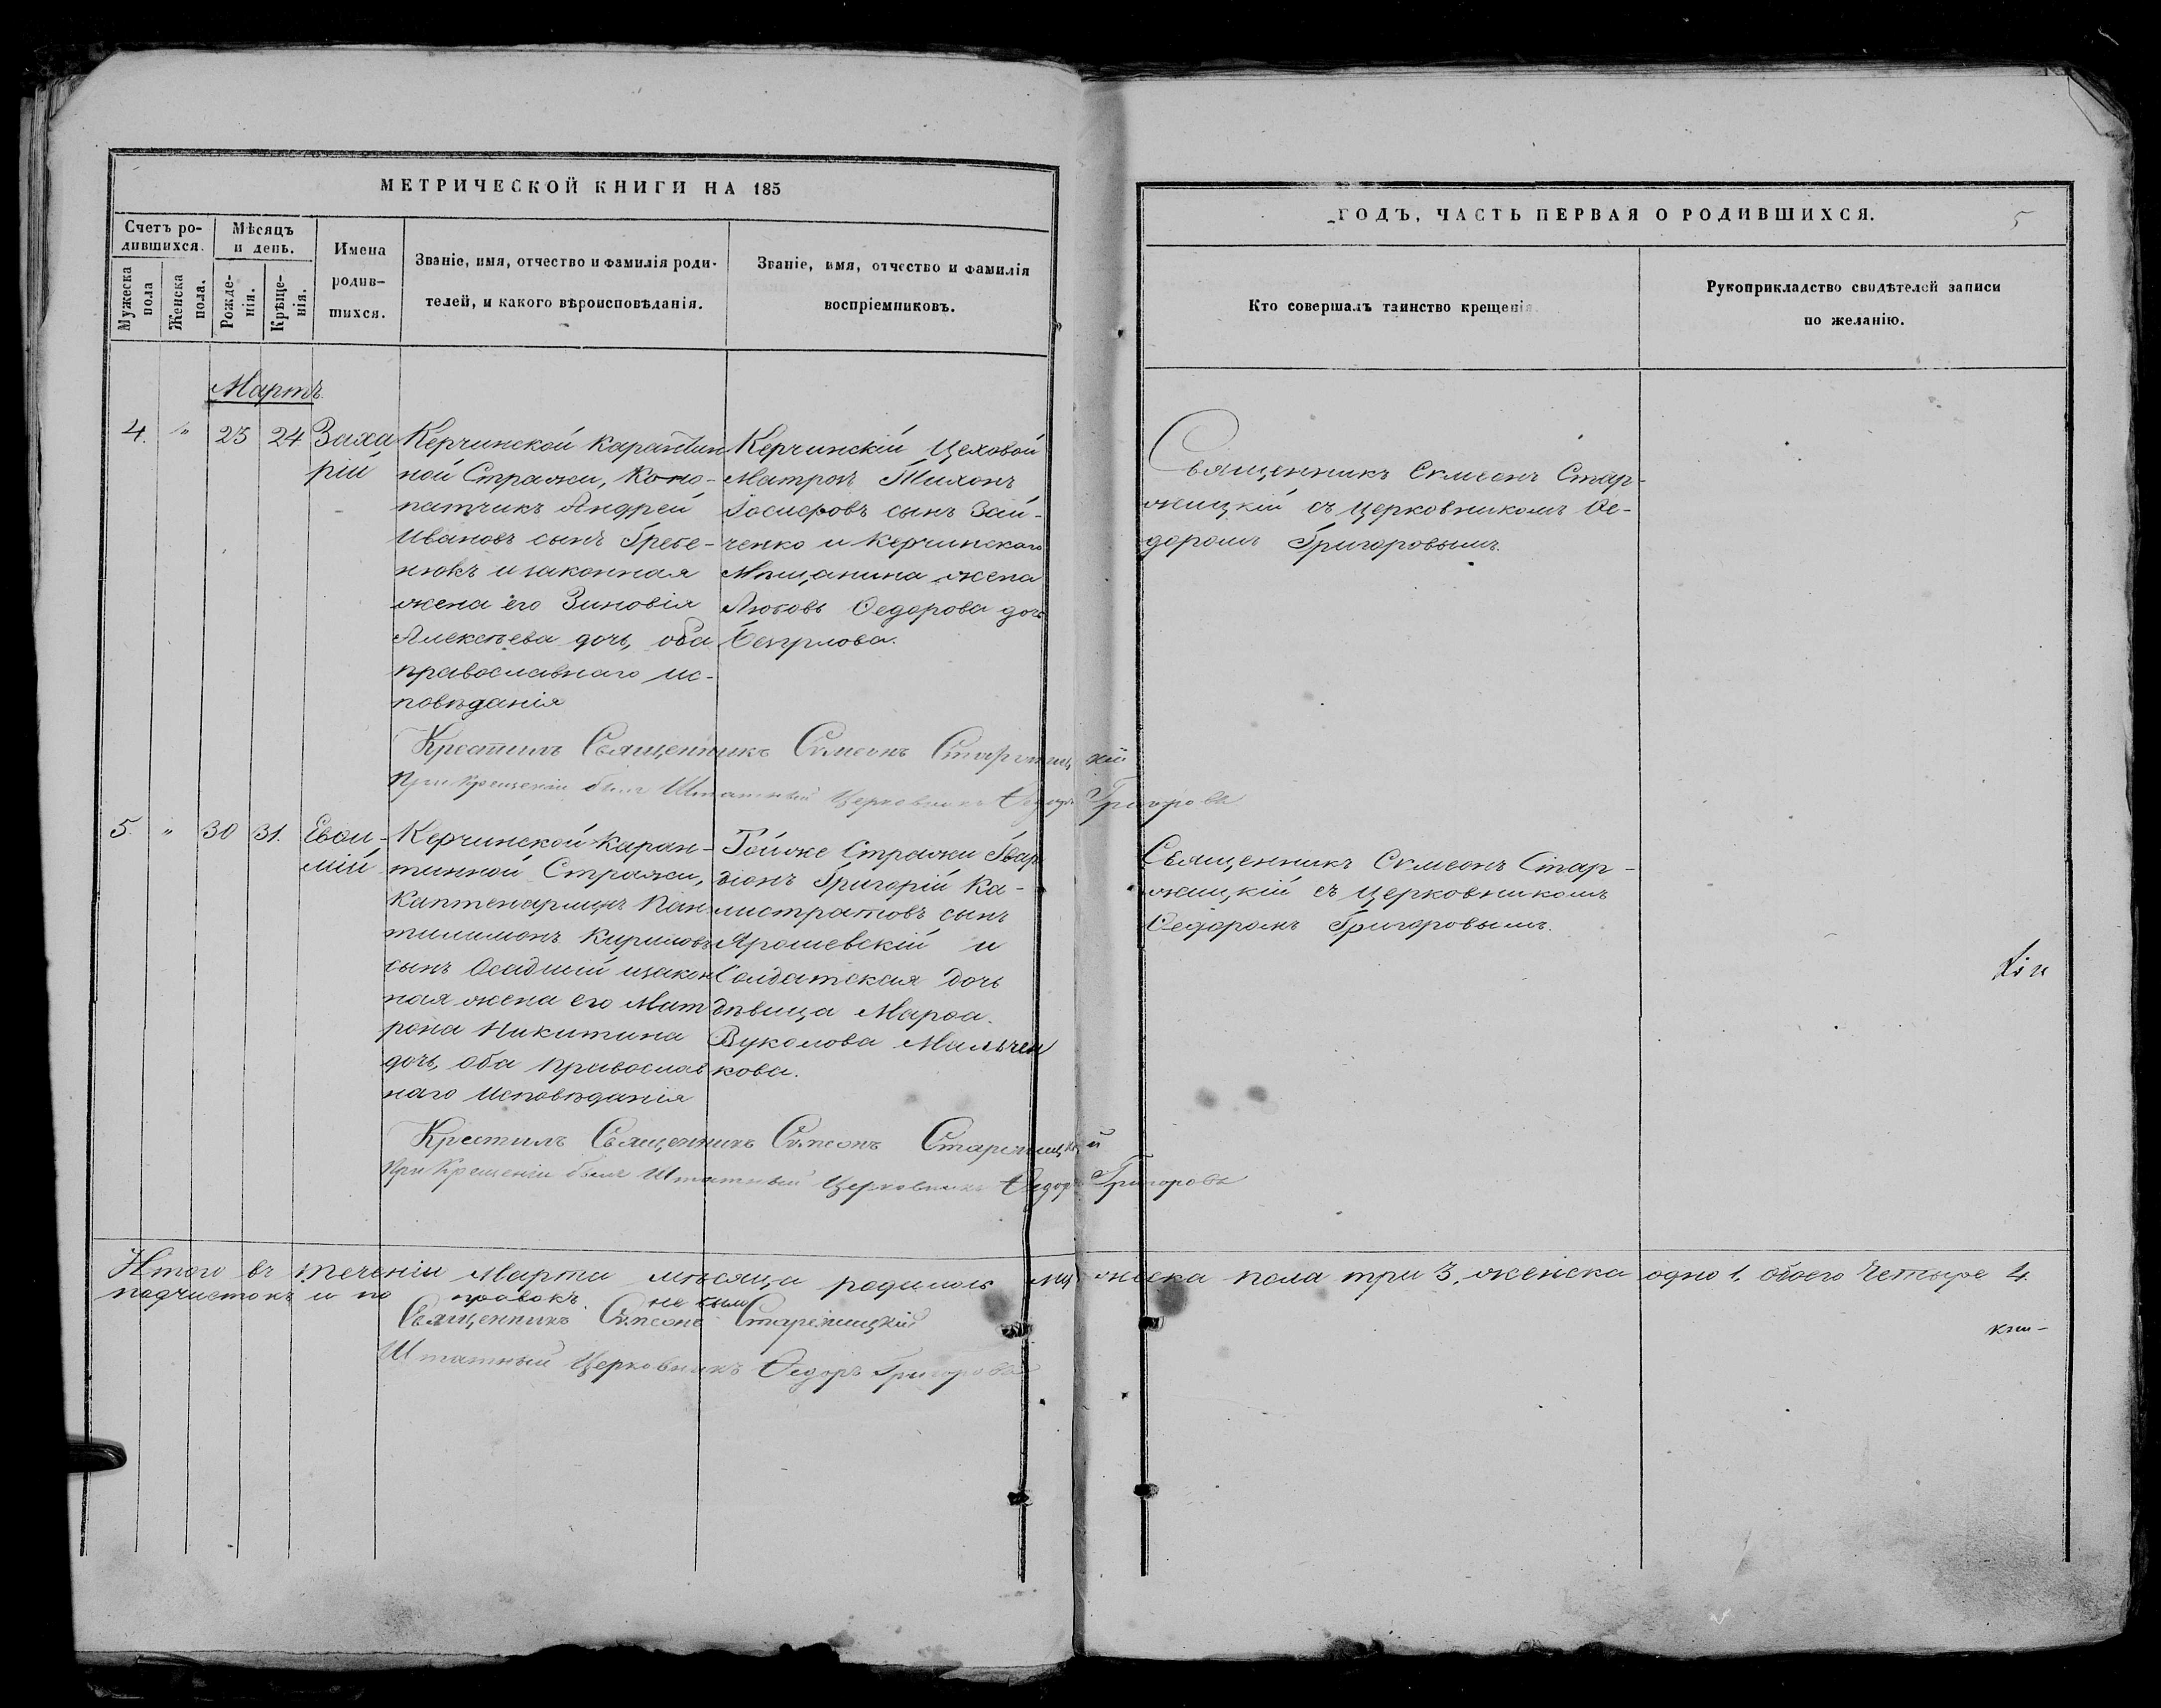 МЕТРИЧЕСКОЙ КНИГИ НА 185
ГОДЪ, ЧАСТЬ ПЕРВАЯ О РОДИВШИХСЯ.
5
Счетъ ро-
дившихся.
Мужеска
пола
Женска
пола.
Мѣсяцъ
и день.
Рожде-
нія.
Крѣще-
нія.
Имена
родив-
шихся.
Званіе, имя, отчество и фамилія роди-
телей, и какого вѣроисповѣданія.
Званіе, имя, отчество и фамилія
воспріемниковъ.
Кто совершалъ таинство крещенія
Рукоприкладство свидѣтелей записи
по желанію.
Мартъ.
4. " 23 24
Заха
рій
Керчинской карантин
ной Стражи, Коно-
патчикъ Андрей
Ивановъ сынъ Гребе-
нюкъ и законная
жена его Зиновія
Алексѣева дочь, оба
православнаго ис-
повѣданія
Керчинскій Цеховой
Матрозъ Тихонъ
Іосифовъ сынъ Зай-
ченко и Керчинскаго
Мѣщанина жена
Любовь Ѳедорова дочь
Священникъ Симеонъ Стар-
жицкій съ церковникомъ Ѳе-
доромъ Григоровымъ.
Крестилъ Священникъ Симеонъ Старжицкій
При Крещеніи былъ Штатный Церковникъ Ѳедоръ Григоровъ
5. " 30 31.
Евѳи-
мій
Керчинской Каран-
тинной Стражи,
Каптенармусъ Пан
тилимонъ Кириловъ
сынъ Осадшій и закон
ная жена его Мат
рона Никитина
дочь, оба Православ
наго Исповѣданія
Тойже Стражи Гвар
діонъ Григорій Ка-
листратовъ сынъ
Ярошевскій и
Солдатская дочь
дѣвица Марѳа
Вуколова Мальчен
кова.
Священникъ Симеонъ Стар-
жицкій съ церковникомъ
Ѳедоромъ Григоровымъ.
Крестилъ Священникъ Симеонъ Старжицкій
При Крещеніи былъ Штатный Церковникъ Ѳедоръ Григоровъ
Итого въ теченіи Марта мѣсяца родилось мужеска пола три 3, женска одно 1, обоего четыре 4.
подчистокъ и поправокъ не было
Священникъ Симеонъ Старжицкій
Штатный Церковникъ Ѳедоръ Григоровъ